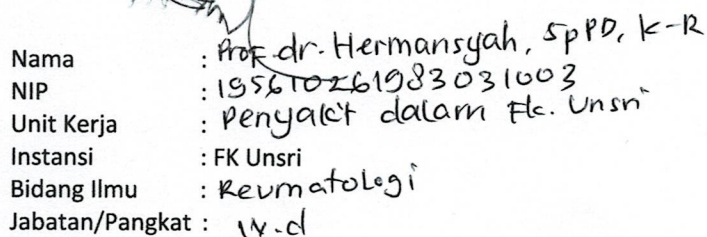 Nama : Prof dr. Hermansyah, SpPD, K-R
NIP : 195610261983031003
Unit Kerja : Penyakit dalam Fk. Unsri
Instansi : FK Unsri
Bidang Ilmu : Reumatologi
Jabatan/Pangkat : IV.d